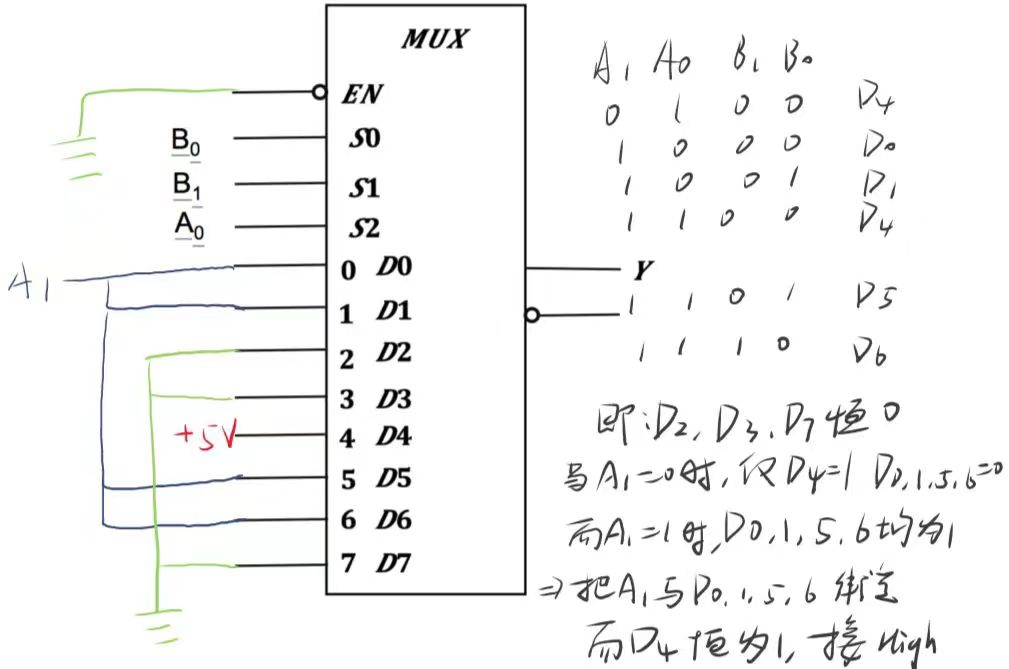 MUX
EN
B₀ S0
B₁ S1
A₀ S2
A₁ 0 D0
1 D1
2 D2
3 D3
+5V 4 D4
5 D5
6 D6
7 D7
Y
A₁ A₀ B₁ B₀
0 1 0 0 D4
1 0 0 0 D0
1 0 0 1 D1
1 1 0 0 D4
1 1 0 1 D5
1 1 1 0 D6
即:D2,D3,D7恒0
当A₁=0时,仅D4=1 D0,1,5,6=0
而A₁=1时,D0,1,5,6均为1
⇒把A₁与D0,1,5,6
而D4恒为1,接High